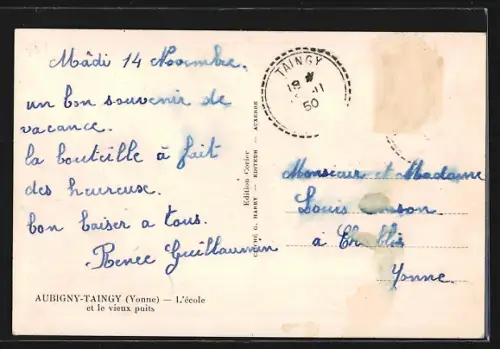 Mâdi 14 Novembre.
un bon souvenir de
vacance.
la bouteille à fait
des heureuse.
bon baiser a tous.
Renée Guillaumin
AUBIGNY-TAINGY (Yonne) — L'école
et le vieux puits
Edition Corrier
CLICHÉ G. HARRY — EDITEUR — AUXERRE
TAINGY
18 *
-11
50
Monsieur et Madame
Louis
à Chablis
Yonne.